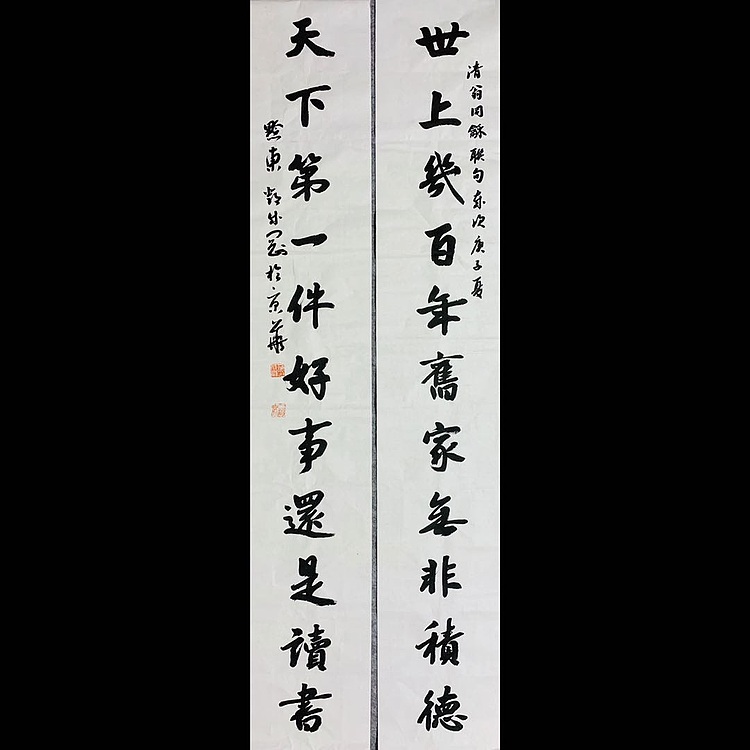 世上幾百年舊家無非積德
清翁同龢聯句歲次庚子夏
天下第一件好事還是讀書
黔東 於京華